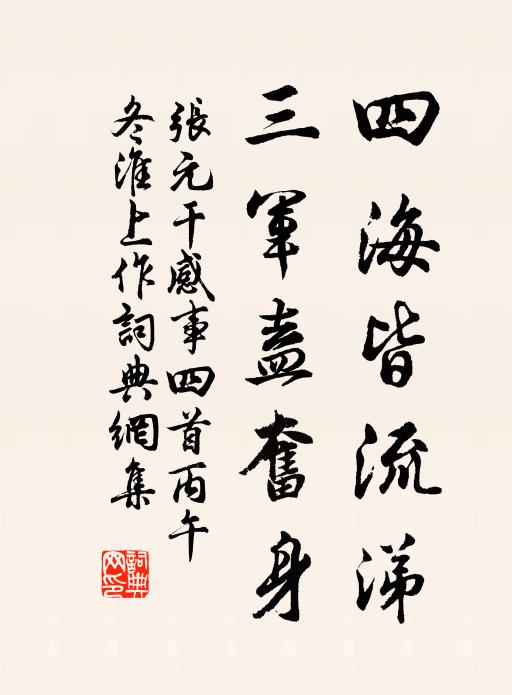 四海皆流涕
三軍盍奮身
張元干感事四首丙午
冬淮上作詞典網集
詞典
網印